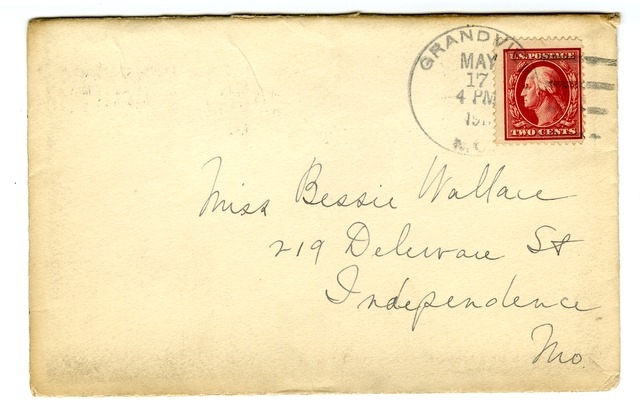 MAY
17
4 PM
U.S. POSTAGE
TWO CENTS
Miss Bessie Wallace
219 Delewore St
Independence
Mo.